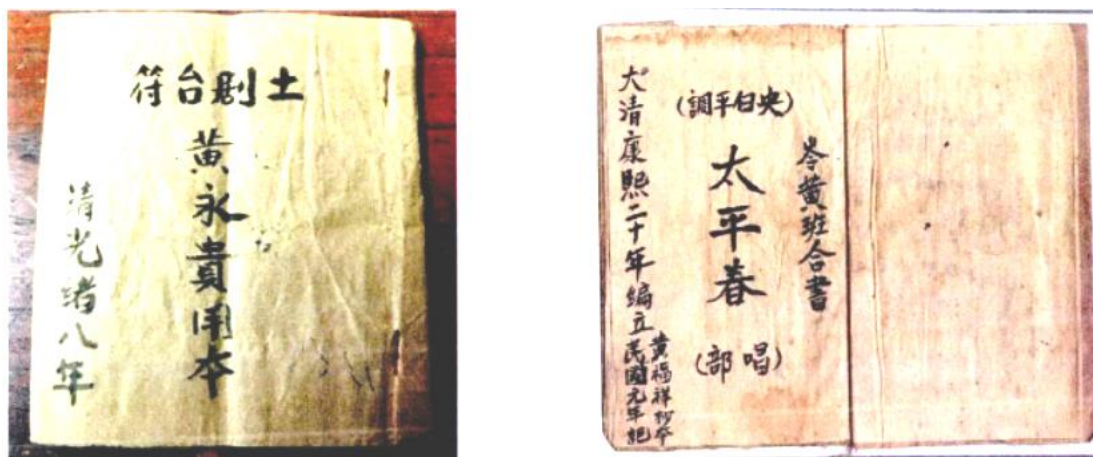 土剧台符
黄永貴用本
清光绪八年
岑黄班合書
(央白平調)
太平春
(唱部)
大清康熙二十年编立
黄福祥抄本
民國元年纪